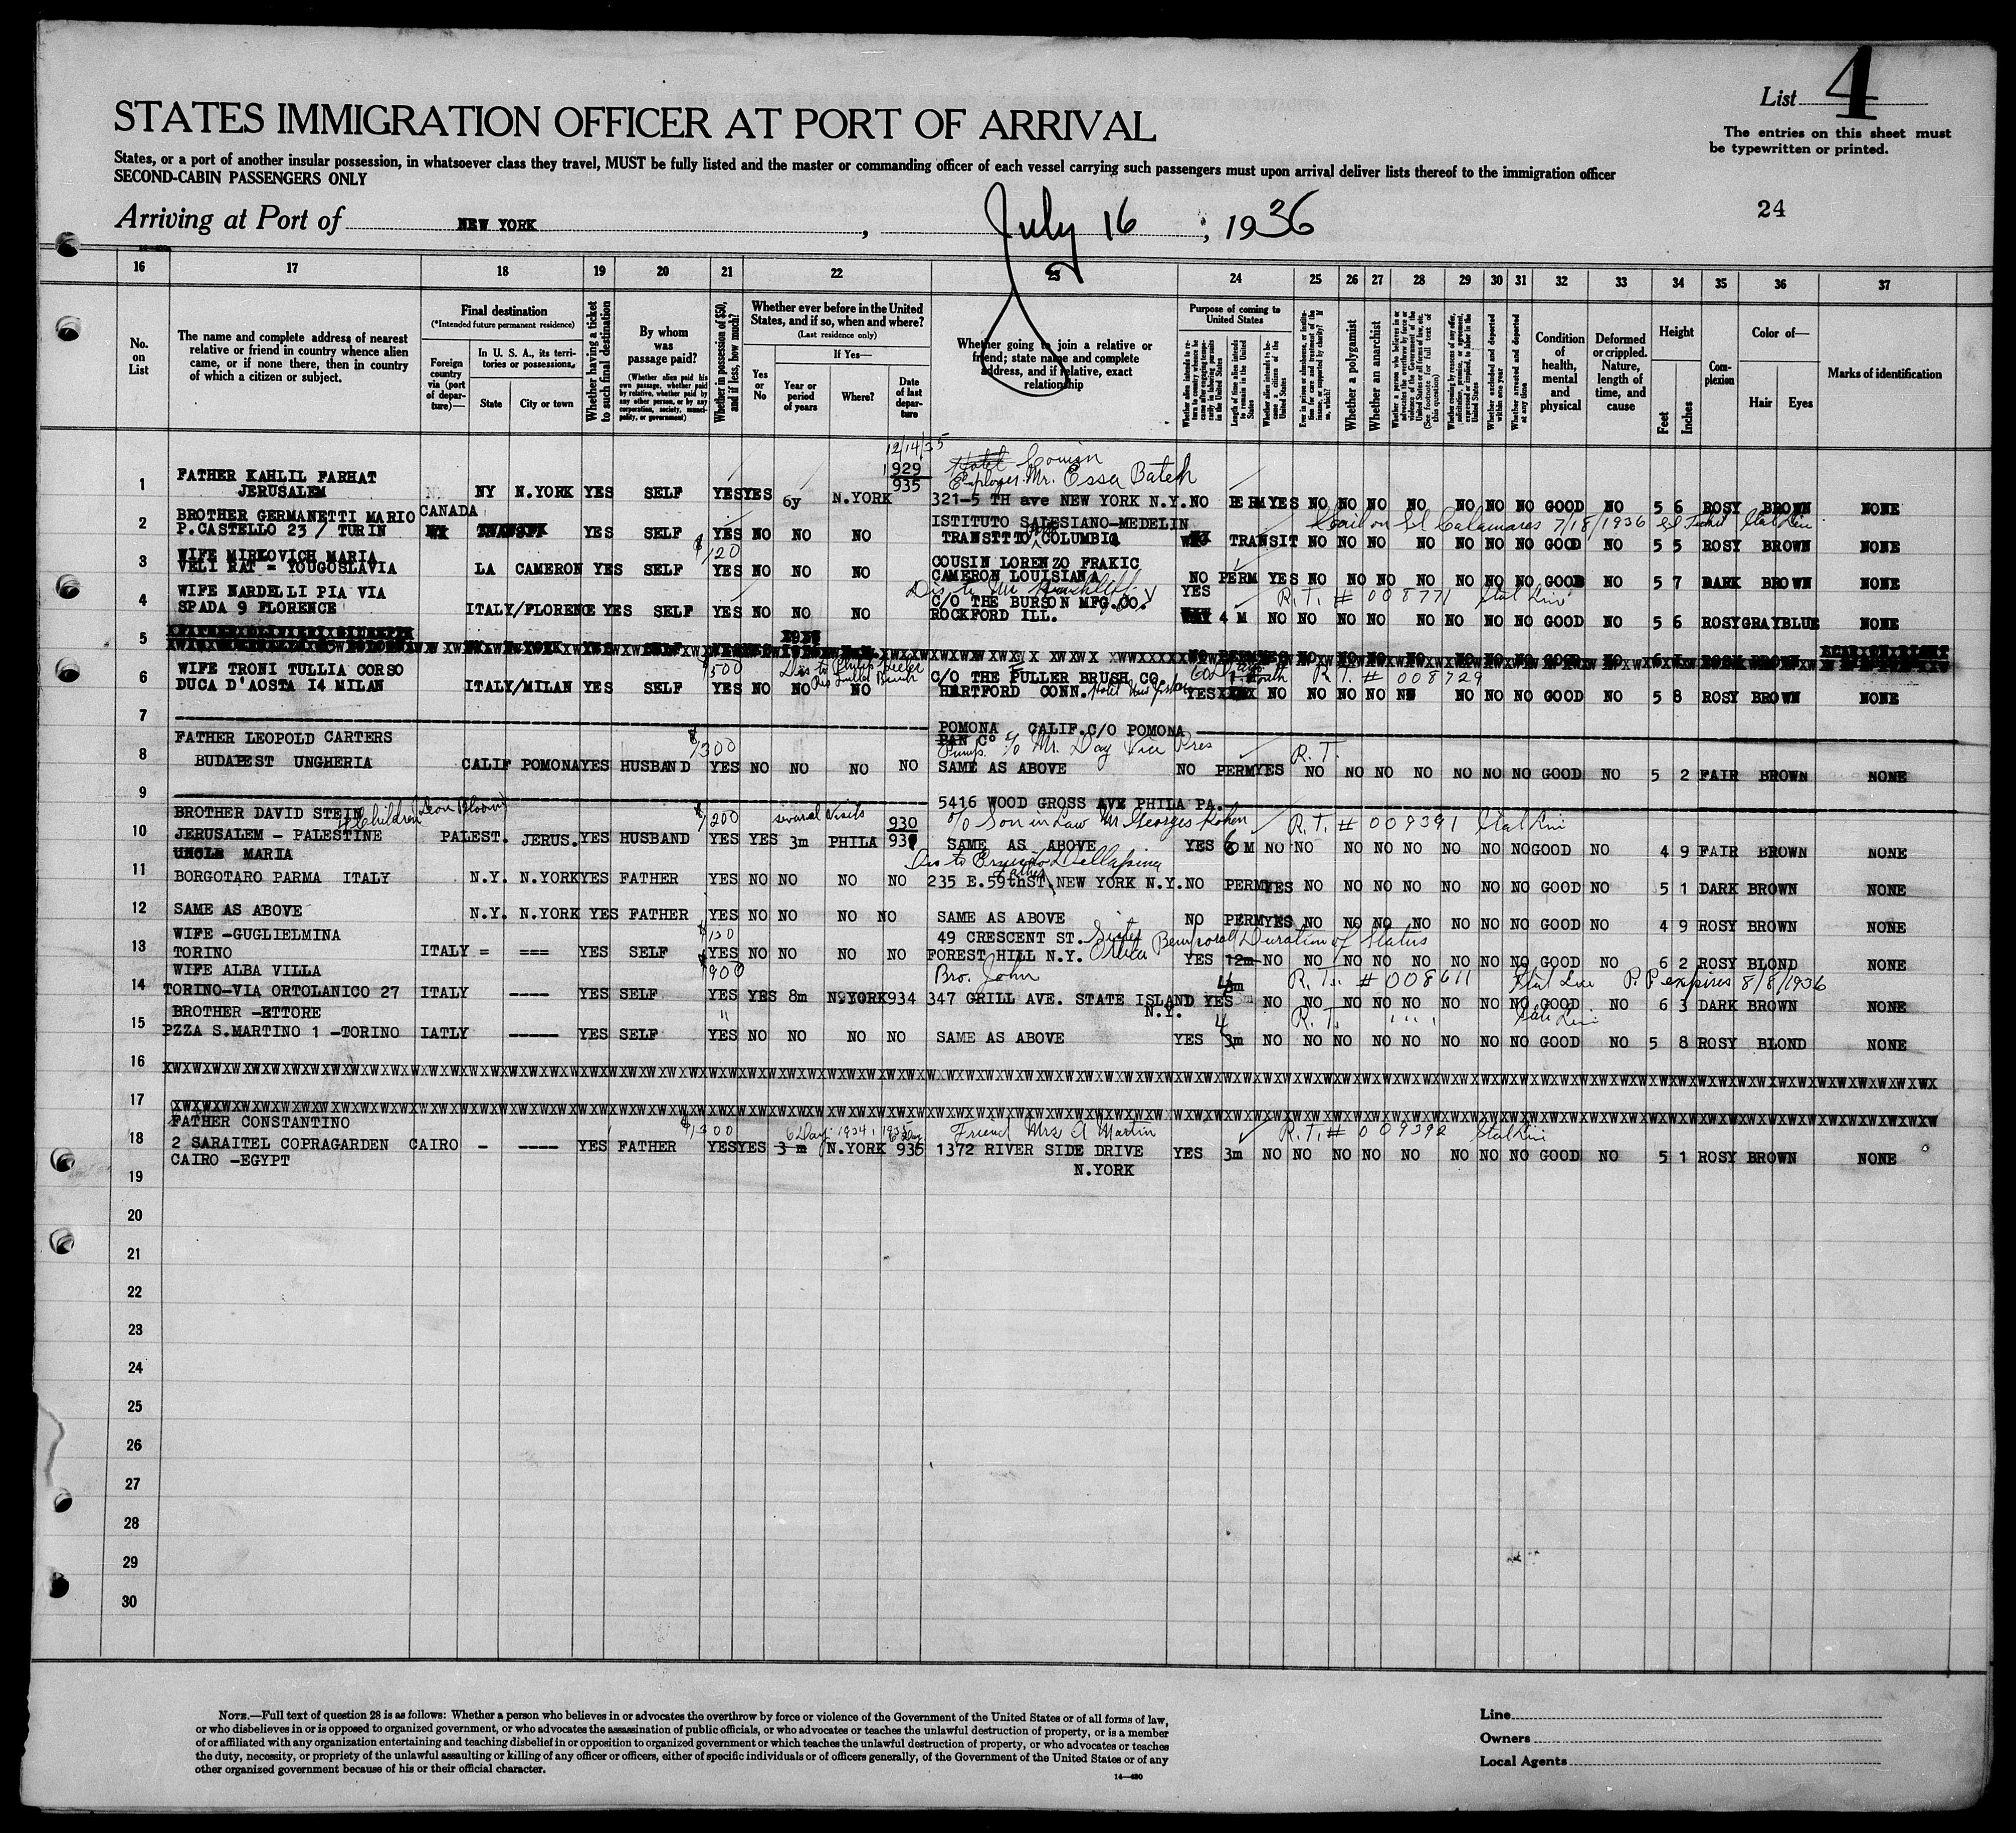 List 4
The entries on this sheet must
be typewritten or printed.
STATES IMMIGRATION OFFICER AT PORT OF ARRIVAL
States, or a port of another insular possession, in whatsoever class they travel, MUST be fully listed and the master or commanding officer of each vessel carrying such passengers must upon arrival deliver lists thereof to the immigration officer
SECOND-CABIN PASSENGERS ONLY
24
Arriving at Port of NEW YORK, July 16, 1936
16 17 18 19 20 21 22 23 24 25 26 27 28 29 30 31 32 33 34 35 36 37
No. on List
The name and complete address of nearest
relative or friend in country whence alien
came, or if none there, then in country
of which a citizen or subject.
Final destination
(*Intended future permanent residence)
Foreign country via (port of departure)—
In U. S. A., its territories or possessions.
State
City or town
Whether having a ticket to such final destination
By whom was passage paid?
(Whether alien paid his own passage, whether paid by relative, whether paid by any other person, or by any corporation, society, municipality, or government)
Whether in possession of $50, and if less, how much?
Whether ever before in the United
States, and if so, when and where?
(Last residence only)
Yes or No
If Yes—
Year or period of years
Where?
Date of last departure
Whether going to join a relative or
friend; state name and complete
address, and if relative, exact
relationship
Purpose of coming to
United States
Length of time alien intends to remain in the United States
Whether alien intends to become a citizen of the United States
Whether a polygamist
Whether an anarchist
Whether excluded and deported within one year
Whether arrested and deported at any time
Condition of health, mental and physical
Deformed or crippled. Nature, length of time, and cause
Height
Feet
Inches
Complexion
Color of—
Hair
Eyes
Marks of identification
12/14/35
1929 Hotel Cousin
935 Employer Mr. Essa Bateh
1 FATHER KAHLIL FARHAT
JERUSALEM NY N.YORK YES SELF YES YES 6y N.YORK 321-5 TH ave NEW YORK N.Y. NO PERM YES NO NO NO NO NO NO NO GOOD NO 5 6 ROSY BROWN NONE
2 BROTHER GERMANETTI MARIO CANADA ISTITUTO SALESIANO-MEDELIN Sail on SS Calamares 7/18/1936
P.CASTELLO 23/ TURIN YES SELF YES NO NO NO TRANSTTO COLUMBIA TRANSIT NO NO NO NO NO NO NO GOOD NO 5 5 ROSY BROWN NONE
$120
3 WIFE MIRKOVICH MARIA COUSIN LORENZO FRAKIC
VELI RAT = YOUGOSLAVIA LA CAMERON YES SELF YES NO NO NO CAMERON LOUISIANA NO PERM YES NO NO NO NO NO NO NO GOOD NO 5 7 DARK BROWN NONE
4 WIFE NARDELLI PIA VIA C/O THE BURSON MFG.CO. YES R.T. # 008771 Ital Line
SPADA 9 FLORENCE ITALY/FLORENCE YES SELF YES NO NO NO ROCKFORD ILL. 4 M NO NO NO NO NO NO NO NO GOOD NO 5 6 ROSY GRAY BLUE NONE
5
6 WIFE TRONI TULLIA CORSO $500 C/O THE FULLER BRUSH CO. R.T. # 008729
DUCA D'AOSTA I4 MILAN ITALY/MILAN YES SELF YES NO NO NO HARTFORD CONN. YES NO NO NO NO NO NO NO GOOD NO 5 8 ROSY BROWN NONE
7 POMONA CALIF.C/O POMONA
FATHER LEOPOLD CARTERS $300 Pump. C/O Mr. Day Vice Pres R.T.
8 BUDAPEST UNGHERIA CALIF POMONA YES HUSBAND YES NO NO NO NO SAME AS ABOVE NO PERM YES NO NO NO NO NO NO NO GOOD NO 5 2 FAIR BROWN NONE
9 5416 WOOD GROSS AVE PHILA PA.
BROTHER DAVID STEIN 4 Children (Leon Bloom) $200 several visits 930 c/o Son in Law Mr Georges Kohen R.T. # 009391 Ital Line
10 JERUSALEM - PALESTINE PALEST. JERUS. YES HUSBAND YES YES 3m PHILA SAME AS ABOVE YES 6 M NO NO NO NO NO NO NO NO GOOD NO 4 9 FAIR BROWN NONE
UNCLE MARIA
11 BORGOTARO PARMA ITALY N.Y. N.YORK YES FATHER YES NO NO NO NO 235 E.59thST, NEW YORK N.Y. NO PERM YES NO NO NO NO NO NO NO GOOD NO 5 1 DARK BROWN NONE
12 SAME AS ABOVE N.Y. N.YORK YES FATHER YES NO NO NO NO SAME AS ABOVE NO PERM YES NO NO NO NO NO NO NO GOOD NO 4 9 ROSY BROWN NONE
WIFE -GUGLIELMINA $120 49 CRESCENT ST. Sister Duration of Status
13 TORINO ITALY = === YES SELF YES NO NO NO NO FOREST HILL N.Y. YES 12m NO NO NO NO NO NO NO NO GOOD NO 6 2 ROSY BLOND NONE
WIFE ALBA VILLA $900 Bro. John R.T. # 008611 Ital Line P.P expires 8/8/1936
14 TORINO-VIA ORTOLANICO 27 ITALY ---- YES SELF YES YES 8m N.YORK 934 347 GRILL AVE. STATE ISLAND YES NO NO NO NO NO NO NO NO GOOD NO 6 3 DARK BROWN NONE
N.Y.
BROTHER -ETTORE " 4 R.T. " " " Ital Line
15 PZZA S.MARTINO 1 -TORINO IATLY ----- YES SELF YES NO NO NO NO SAME AS ABOVE YES 3m NO NO NO NO NO NO NO NO GOOD NO 5 8 ROSY BLOND NONE
16
17
FATHER CONSTANTINO $1300 6 Days 1934 Friend Mrs A Martin R.T. # 009392 Ital Line
18 2 SARAITEL COPRAGARDEN CAIRO - ---- YES FATHER YES YES 3 m N.YORK 935 1372 RIVER SIDE DRIVE YES 3m NO NO NO NO NO NO NO NO GOOD NO 5 1 ROSY BROWN NONE
CAIRO -EGYPT N.YORK
19
20
21
22
23
24
25
26
27
28
29
30
NOTE.—Full text of question 28 is as follows: Whether a person who believes in or advocates the overthrow by force or violence of the Government of the United States or of all forms of law,
or who disbelieves in or is opposed to organized government, or who advocates the assassination of public officials, or who advocates or teaches the unlawful destruction of property, or is a member
of or affiliated with any organization entertaining and teaching disbelief in or opposition to organized government or which teaches the unlawful destruction of property, or who advocates or teaches
the duty, necessity, or propriety of the unlawful assaulting or killing of any officer or officers, either of specific individuals or of officers generally, of the Government of the United States or of any
other organized government because of his or their official character.
14—430
Line
Owners
Local Agents